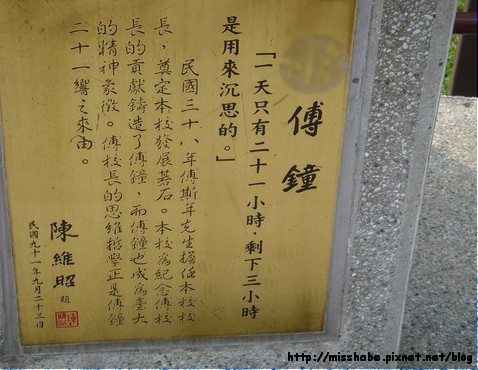 傅鐘
「一天只有二十一小時，剩下三小時
是用來沉思的。」
民國三十八年傅斯年先生擔任本校校
長，奠定本校發展基石。本校為紀念傅校
長的貢獻鑄造了傅鐘，而傅鐘也成為臺大
的精神象徵。傅校長的思維哲學正是傅鐘
二十一響之來由。
陳維昭 題
民國九十一年九月二十三日
http://misshabe.pixnet.net/blog